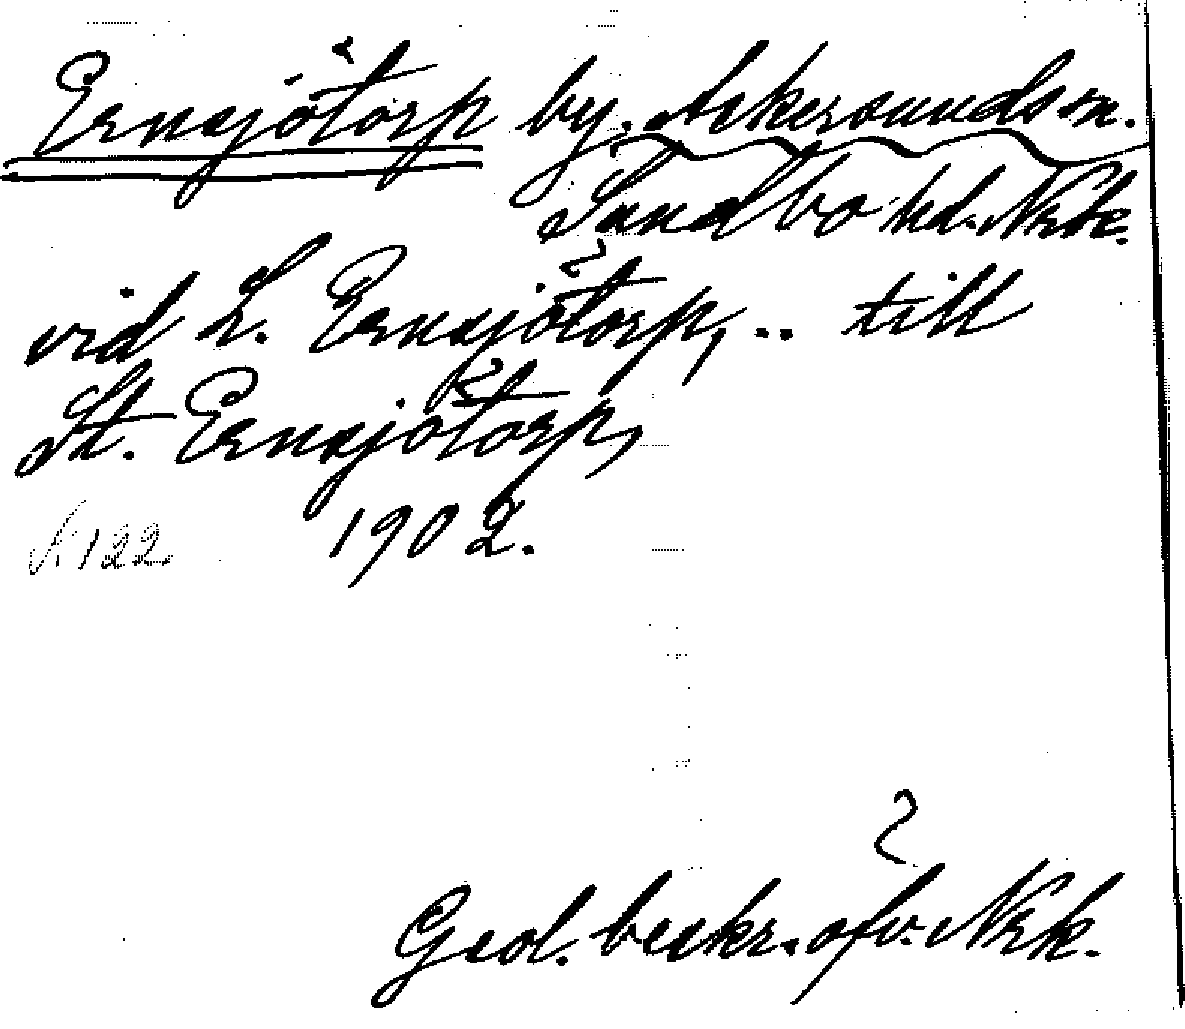 Ernsjötorp by. Askersunds sn.
Sundbo hd. Nrk.
vid L. Ernsjötorp, .. till
St. Ernsjötorp,
S. 122 1902.
Geol. beskr. öfv. Nrk.